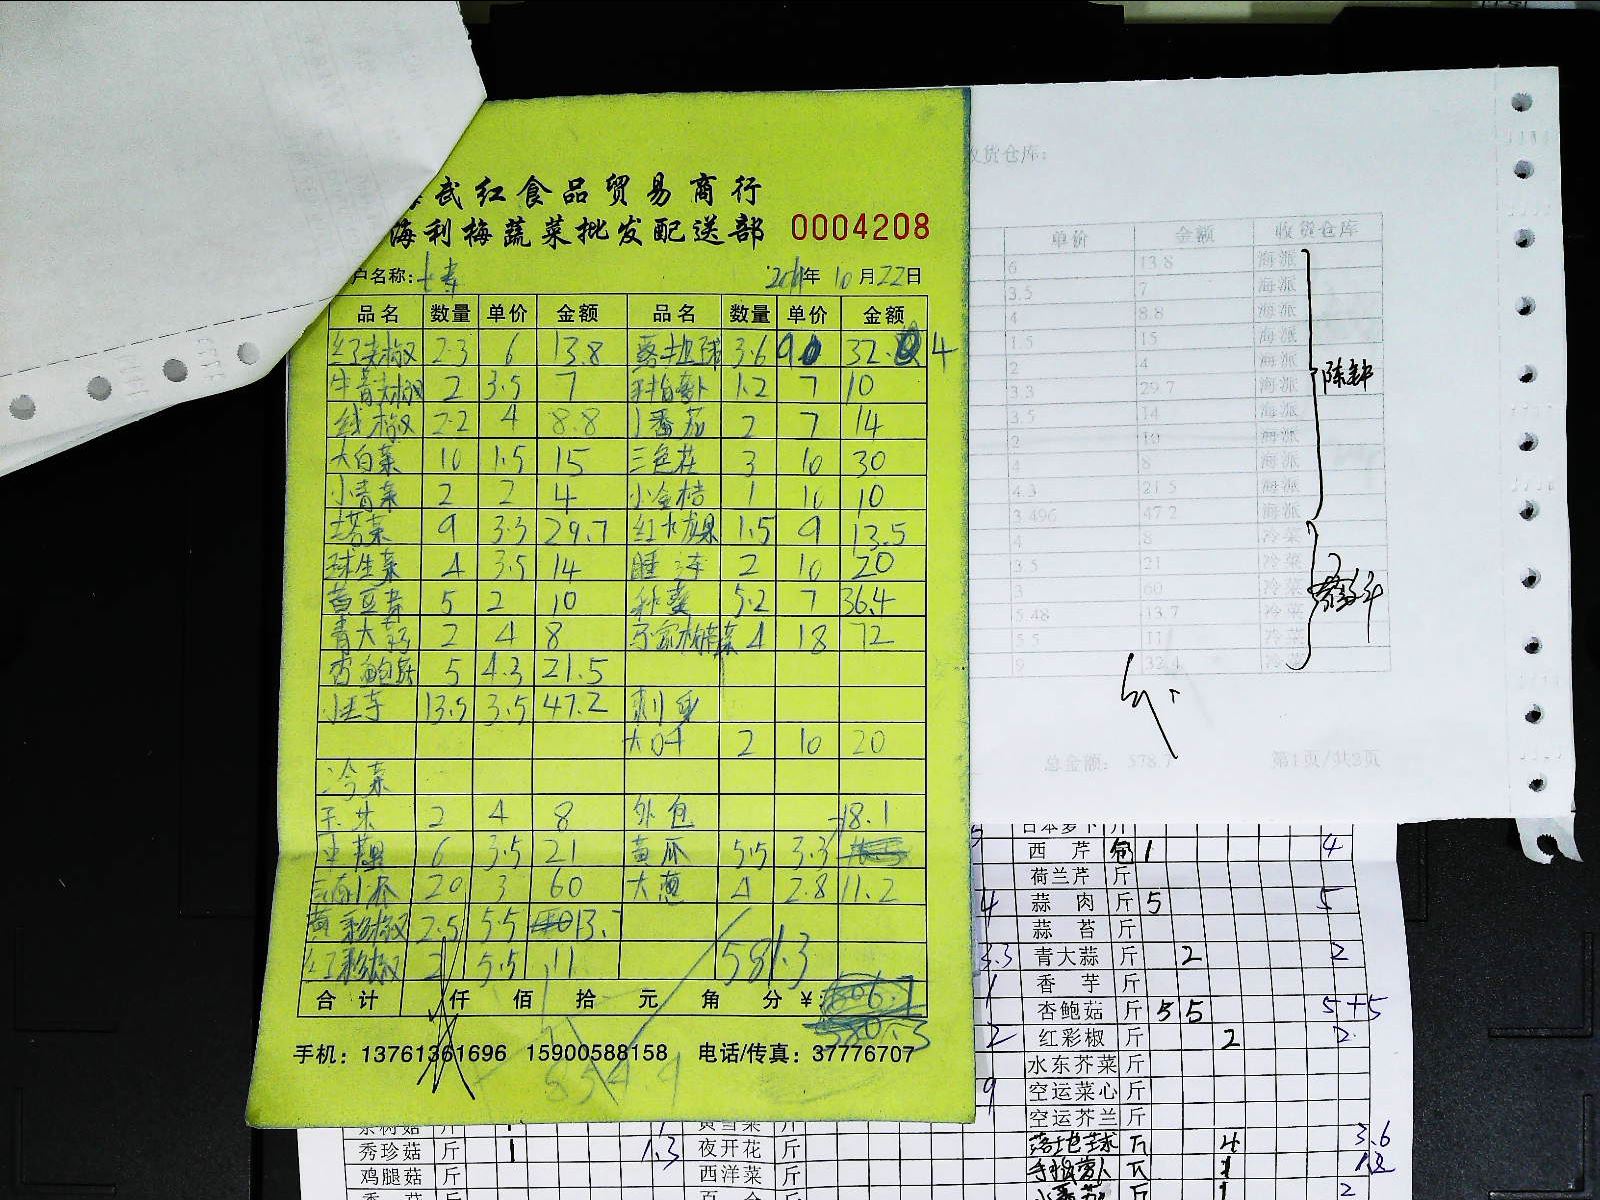 武红食品贸易商行
海利梅蔬菜批发配送部 0004208
户名称: 年 10 月 22 日
品名 数量 单价 金额 品名 数量 单价 金额
红尖椒 2.3 6 13.8 3.6 9 32.4
牛青大椒 2 3.5 7 手指萝卜 1.2 7 10
线椒 2.2 4 8.8 小番茄 2 7 14
大白菜 10 1.5 15 三色花 3 10 30
小青菜 2 2 4 小金桔 1 10 10
塔菜 9 3.3 29.7 红火龙果 1.5 9 13.5
球生菜 4 3.5 14 睡莲 2 10 20
黄豆芽 5 2 10 秋葵 5.2 7 36.4
青大蒜 2 4 8 4 18 72
杏鲍菇 5 4.3 21.5
13.5 3.5 47.2 刺身
大 2 10 20
冷菜
2 4 8 外包 18.1
6 3.5 21 黄瓜 5.5 3.3
20 3 60 大葱 4 2.8 11.2
黄彩椒 2.5 5.5 13.7
红彩椒 2 5.5 11 581.3
合计 仟 佰 拾 元 角 分 ¥:
手机：13761361696 15900588158 电话/传真：37776707
收货仓库:
单价 金额 收货仓库
6 13.8 海派
3.5 7 海派
4 8.8 海派
1.5 15 海派
2 4 海派
3.3 29.7 海派
3.5 14 海派
2 10 海派
4 8 海派
4.3 21.5 海派
3.496 47.2 海派
4 8 冷菜
3.5 21 冷菜
3 60 冷菜
5.48 13.7 冷菜
5.5 11 冷菜
9 32.4 冷菜
总金额: 578.7 第1页/共3页
日本萝卜 斤
西芹 包 1 4
荷兰芹 斤
4 蒜肉 斤 5 5
蒜苔 斤
3.3 青大蒜 斤 2 2
1 香芋 斤
杏鲍菇 斤 5 5 5+5
2 红彩椒 斤 2 2
水东芥菜 斤
9 空运菜心 斤
空运芥兰 斤
落地球 斤 4 3.6
秀珍菇 斤 1 1.3 夜开花 斤
手指萝卜 斤 1 1.2
鸡腿菇 斤 西洋菜 斤
小番茄 斤 1 2